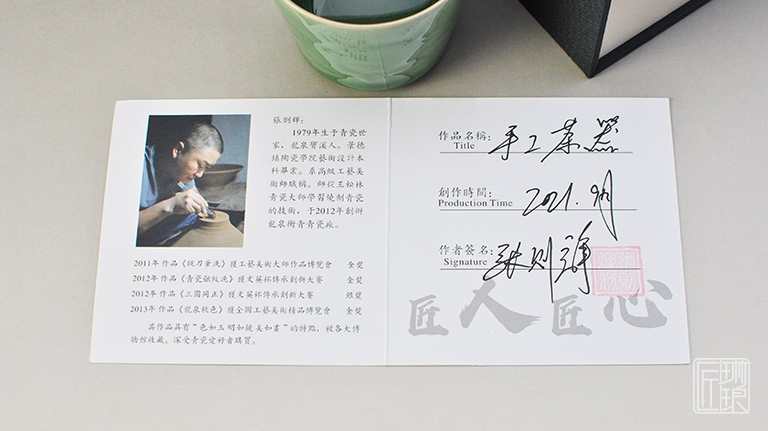 張則輝:
1979年生于青瓷世
家，龍泉寶溪人。景德
鎮陶瓷學院藝術設計本
科畢業。系高級工藝美
術師職稱。師從王松林
青瓷大師學習燒制青瓷
的技術，于2012年創辦
龍泉術青青瓷廠。
2011年作品《跳刀筆洗》獲工藝美術大師作品博覽會 金獎
2012年作品《青瓷蓯紋洗》獲文英杯傳承創新大賽 金獎
2012年作品《三圓同正》獲文英杯傳承創新大賽 銀獎
2013年作品《龍泉秋色》獲全國工藝美術精品博覽會 金獎
其作品具有"色如玉明如鏡美如畫"的特點，被各大博
物館收藏。深受青瓷愛好者購買。
作品名稱:
Title
手工茶器
創作時間:
Production Time
2021.9月
作者簽名:
Signature
張則輝
匠人匠心